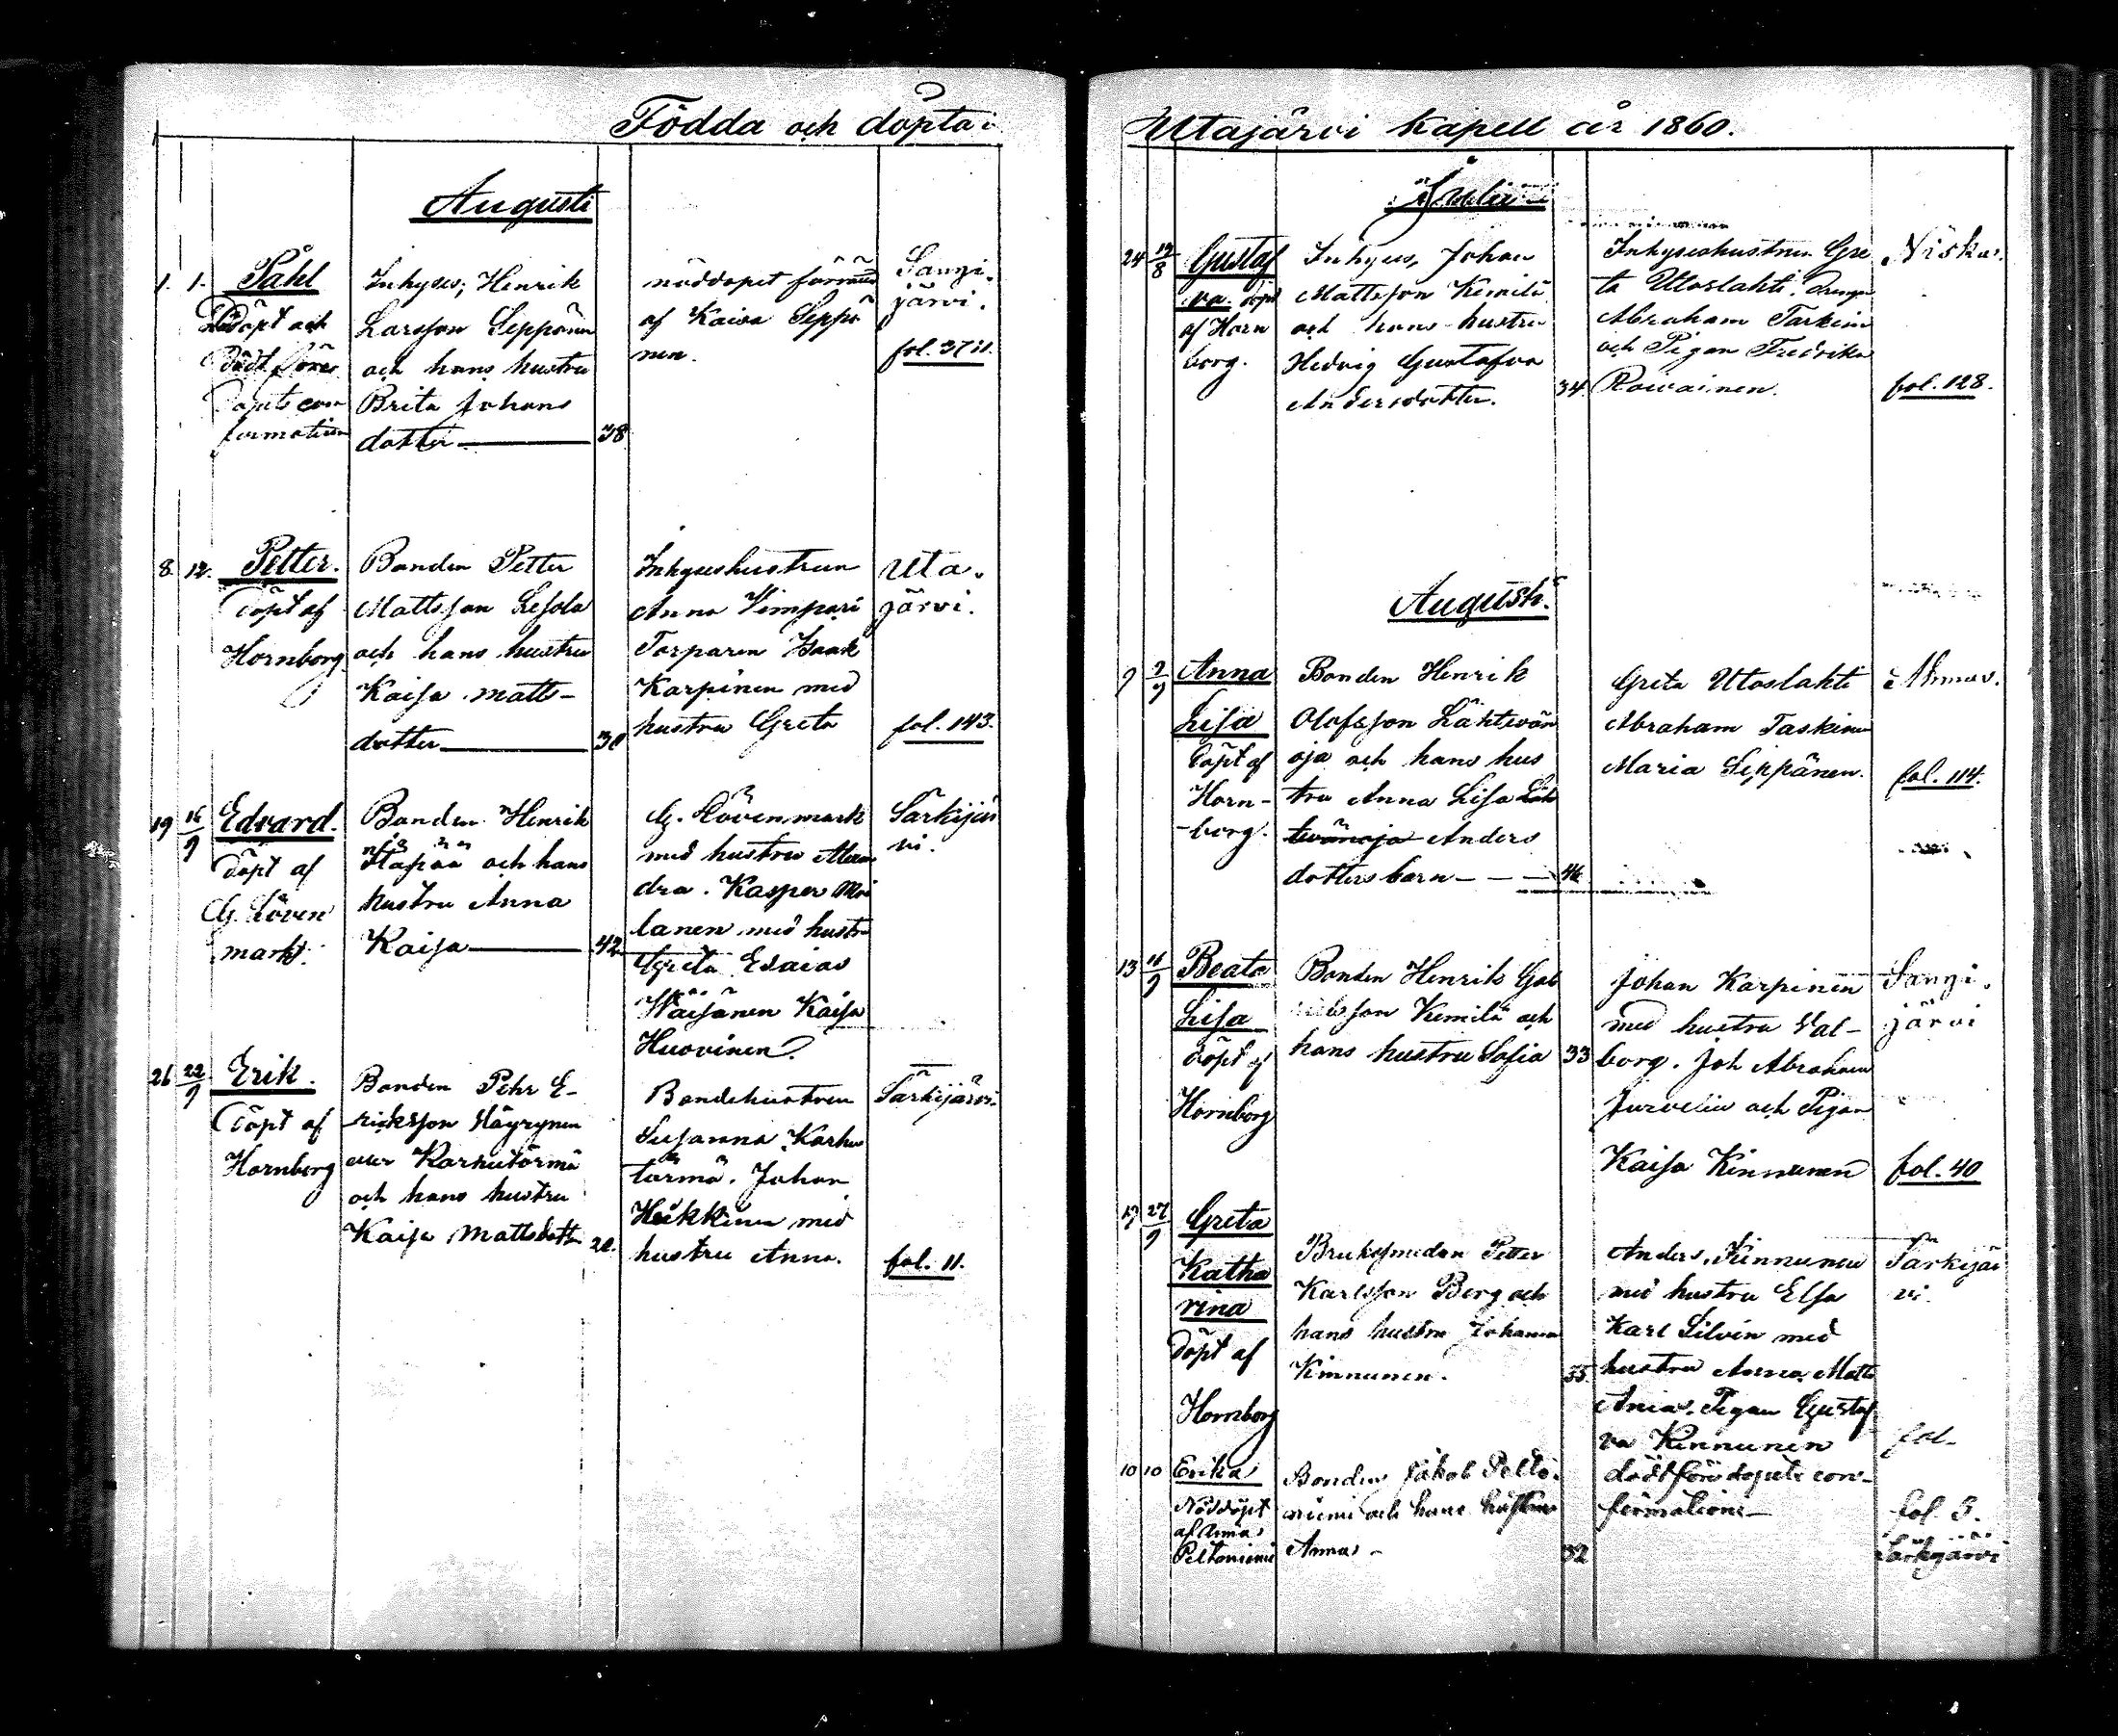 Födda och döpta i
Augusti
1. 1. Påhl
döpt och
Död före
Dopets con
formation
Inhyses, Henrik
Larsson Seppänen
och hans hustru
Brita Johans
dotter 38
nöddopet förrättad
af Kaisa Seppä
nen.
Sangi
järvi.
fol. 37
8. 12. Petter.
döpt af
Hornborg
Bonden Petter
Mattsson
och hans hustru
Kaisa Matts-
dotter 30
Inhyseshustrun
Anna Kimpari
Torparen Isaak
Karpinen med
hustru Greta
Uta-
järvi.
fol. 143.
19 16/9 Edvard.
döpt af
G. Löven
mark.
Bonden Henrik
och hans
hustru Anna
Kaisa 42
G. Lövenmark
med hustru Alexan
dra. Kasper Moi
lanen med hustru
Greta Esaias
Wäisänen Kaisa
Huovinen.
Särkijär
vi.
26 22/9 Erik.
döpt af
Hornborg
Bonden Pehr E-
riksson Häyrynen
eller Karhutörmä
och hans hustru
Kaisa Mattsdotter 20.
Bondehustrun
Susanna Karhu
törmä. Johan
Heikkinen med
hustru Anna.
Särkijärvi.
fol. 11.
Utajärvi Kapell år 1860.
Julii
24 12/8 Gustaf
va. döpt
af Horn
borg.
Inhyses, Johan
Mattsson Kemilä
och hans hustru
Hedvig Gustafva
Andersdotter. 34.
Inhyseshustrun Gre
ta Utoslahti. Drengen
Abraham Taskinen
och Pigan Fredrika
Roivainen.
Niska.
fol. 128.
Augusti.
9 2/9 Anna
Lisa
döpt af
Horn-
-borg.
Bonden Henrik
Olofsson Lähtevän
oja och hans hus
tru Anna Lisa Läh
tevänoja Anders
dotters barn - - - 46
Greta Utoslahti
Abraham Taskinen
Maria Seppänen.
Ahmas.
fol. 114.
13 16/9 Beata
Lisa
döpt af
Hornborg
Bonden Henrik Gab
rielsson Kemilä och
hans hustru Sofia 33
Johan Karpinen
med hustru Val-
borg. Joh Abraham
Jurvelin och Pigan
Kaisa Kinnunen
Sangi.
järvi
fol. 40
17 27/9 Greta
Katha
rina
döpt af
Hornborg
Bruksmeden Petter
Karlsson Berg och
hans hustru Johanna
Kinnunen. 35.
Anders Kinnunen
med hustru Elsa
Karl Silvén med
hustru Anna, Matts
Ania. Pigan Gustaf
va Kinnunen
Särkijär
vi.
fol.
10 10 Erika
Nöddöpt
af Anna
Peltoniemi
Bonden Jakob Pelto-
niemi och hans hustru
Anna - 32
död före dopets con-
firmation-
fol. 5.
Särkijärvi